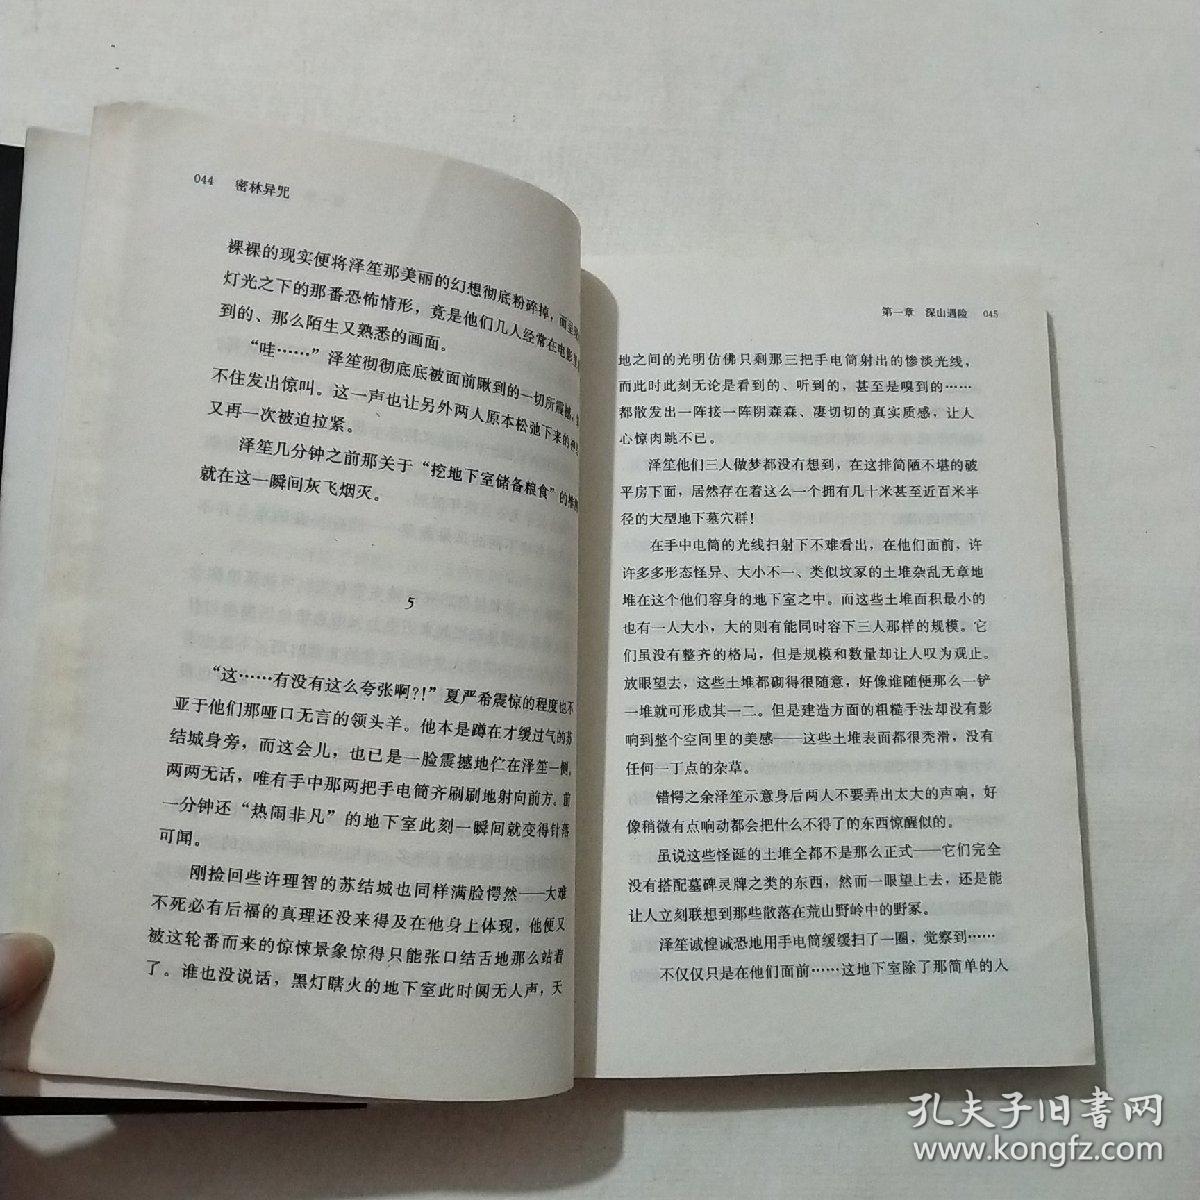 044 密林异咒
裸裸的现实便将泽笙那美丽的幻想彻底粉碎掉，而呈现
灯光之下的那番恐怖情形，竟是他们几人经常在电影里
到的、那么陌生又熟悉的画面。
“哇……”泽笙彻彻底底被面前瞅到的一切所震撼，
不住发出惊叫。这一声也让另外两人原本松弛下来的神经
又再一次被迫拉紧。
泽笙几分钟之前那关于“挖地下室储备粮食”的
就在这一瞬间灰飞烟灭。
5
“这……有没有这么夸张啊?!”夏严希震惊的程度也不
亚于他们那哑口无言的领头羊。他本是蹲在才缓过气的苏
结城身旁，而这会儿，也已是一脸震撼地伫在泽笙一侧，
两两无话，唯有手中那两把手电筒齐刷刷地射向前方。前
一分钟还“热闹非凡”的地下室此刻一瞬间就变得针落
可闻。
刚捡回些许理智的苏结城也同样满脸愕然——大难
不死必有后福的真理还没来得及在他身上体现，他便又
被这轮番而来的惊悚景象惊得只能张口结舌地那么站着
了。谁也没说话，黑灯瞎火的地下室此时阒无人声，天
第一章 深山遇险 045
地之间的光明仿佛只剩那三把手电筒射出的惨淡光线，
而此时此刻无论是看到的、听到的，甚至是嗅到的……
都散发出一阵接一阵阴森森、凄切切的真实质感，让人
心惊肉跳不已。
泽笙他们三人做梦都没有想到，在这排简陋不堪的破
平房下面，居然存在着这么一个拥有几十米甚至近百米半
径的大型地下墓穴群！
在手中电筒的光线扫射下不难看出，在他们面前，许
许多多形态怪异、大小不一、类似坟冢的土堆杂乱无章地
堆在这个他们容身的地下室之中。而这些土堆面积最小的
也有一人大小，大的则有能同时容下三人那样的规模。它
们虽没有整齐的格局，但是规模和数量却让人叹为观止。
放眼望去，这些土堆都砌得很随意，好像谁随便那么一铲
一堆就可形成其一二。但是建造方面的粗糙手法却没有影
响到整个空间里的美感——这些土堆表面都很秃滑，没有
任何一丁点的杂草。
错愕之余泽笙示意身后两人不要弄出太大的声响，好
像稍微有点响动都会把什么不得了的东西惊醒似的。
虽说这些怪诞的土堆全都不是那么正式——它们完全
没有搭配墓碑灵牌之类的东西，然而一眼望上去，还是能
让人立刻联想到那些散落在荒山野岭中的野冢。
泽笙诚惶诚恐地用手电筒缓缓扫了一圈，觉察到……
不仅仅只是在他们面前……这地下室除了那简单的人
孔夫子旧书网
www.kongfz.com